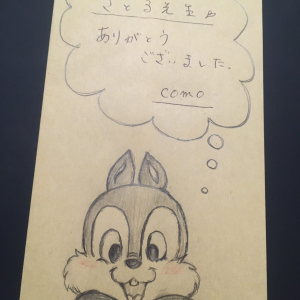 さとる先生
ありがとう
ございました.
como